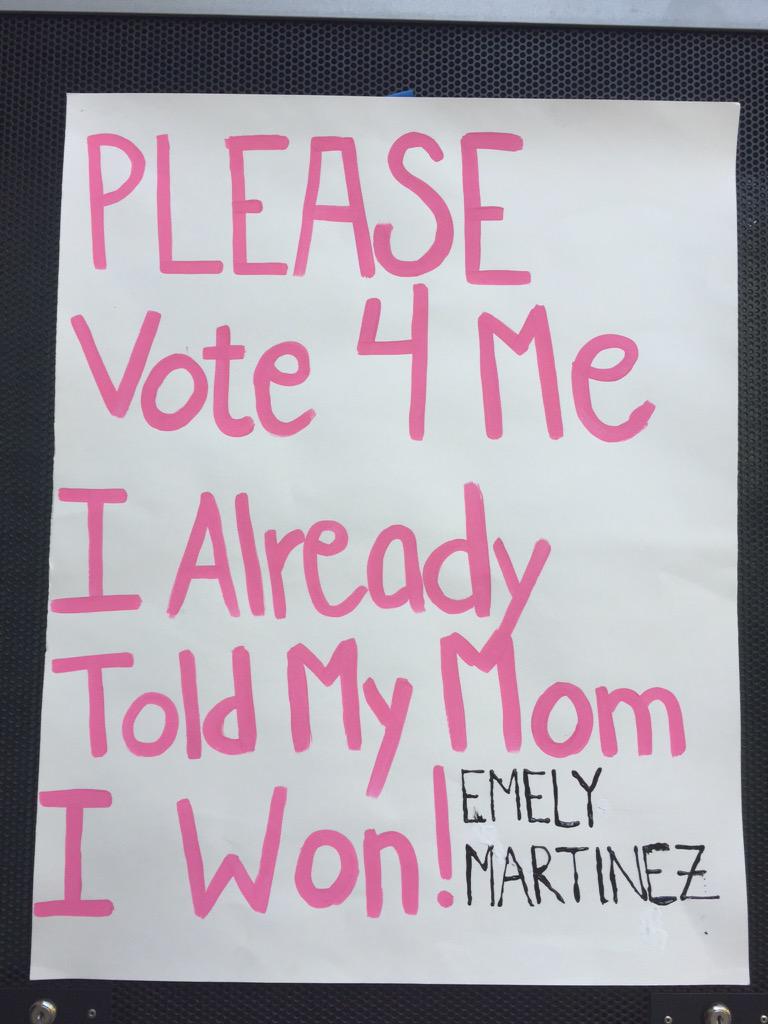 PLEASE
Vote 4 Me
I Already
Told My Mom
I Won!
EMELY
MARTINEZ